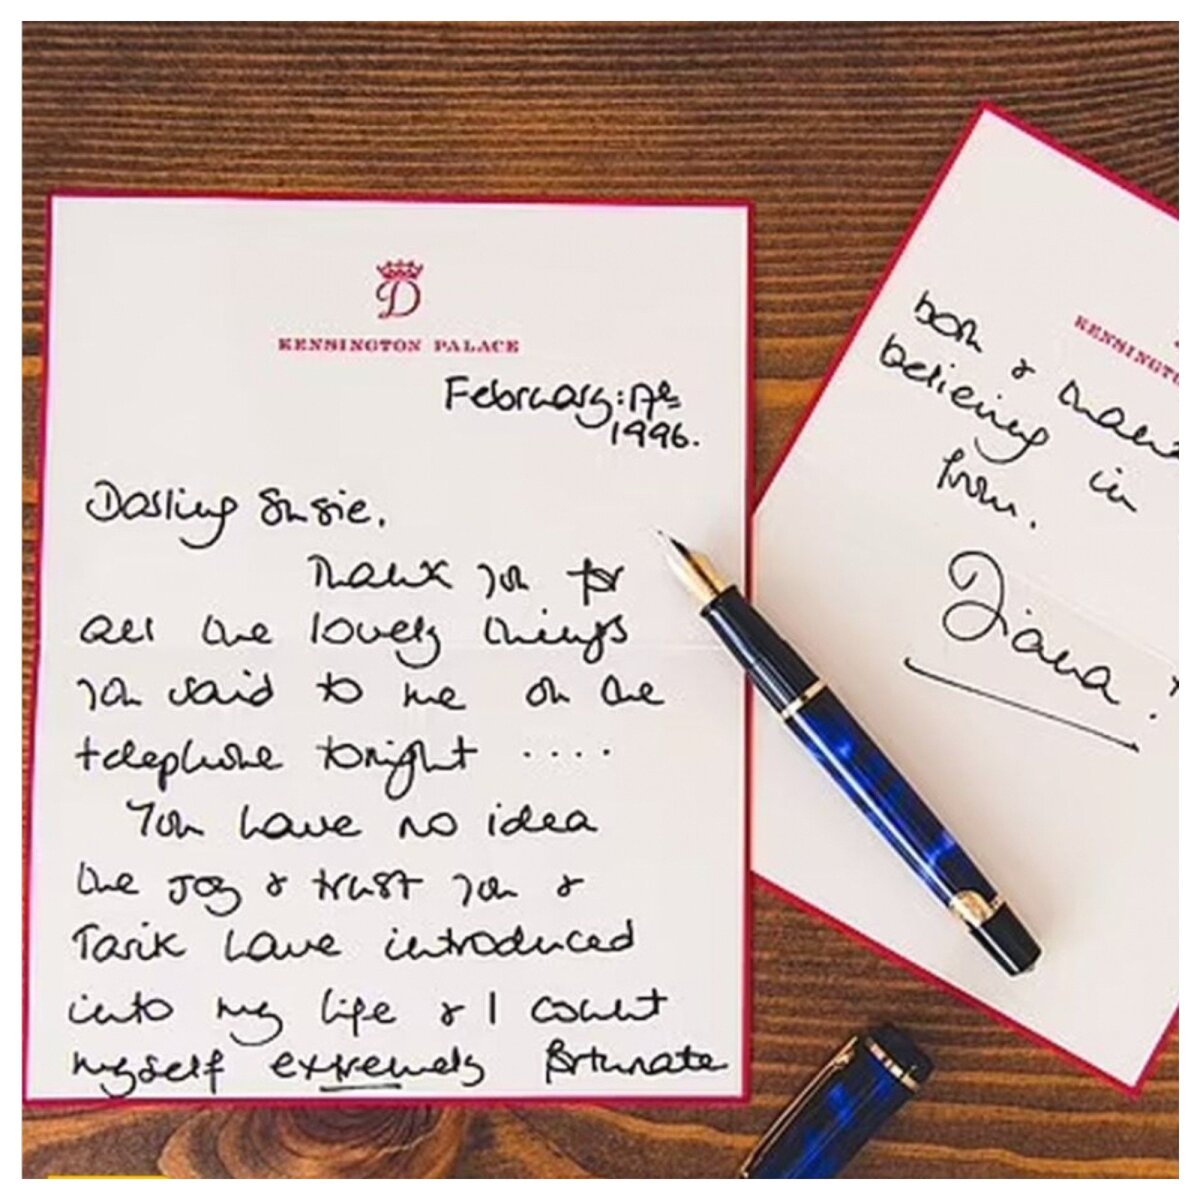 D
KENSINGTON PALACE
February: 17th
1996.
Darling Susie,
Thank you for
all the lovely things
you said to me on the
telephone tonight ....
You have no idea
the joy & trust you &
Tarik have introduced
into my life & I count
myself extremely fortunate
KENSINGTO
both & thank
believing in
from.
Diana.